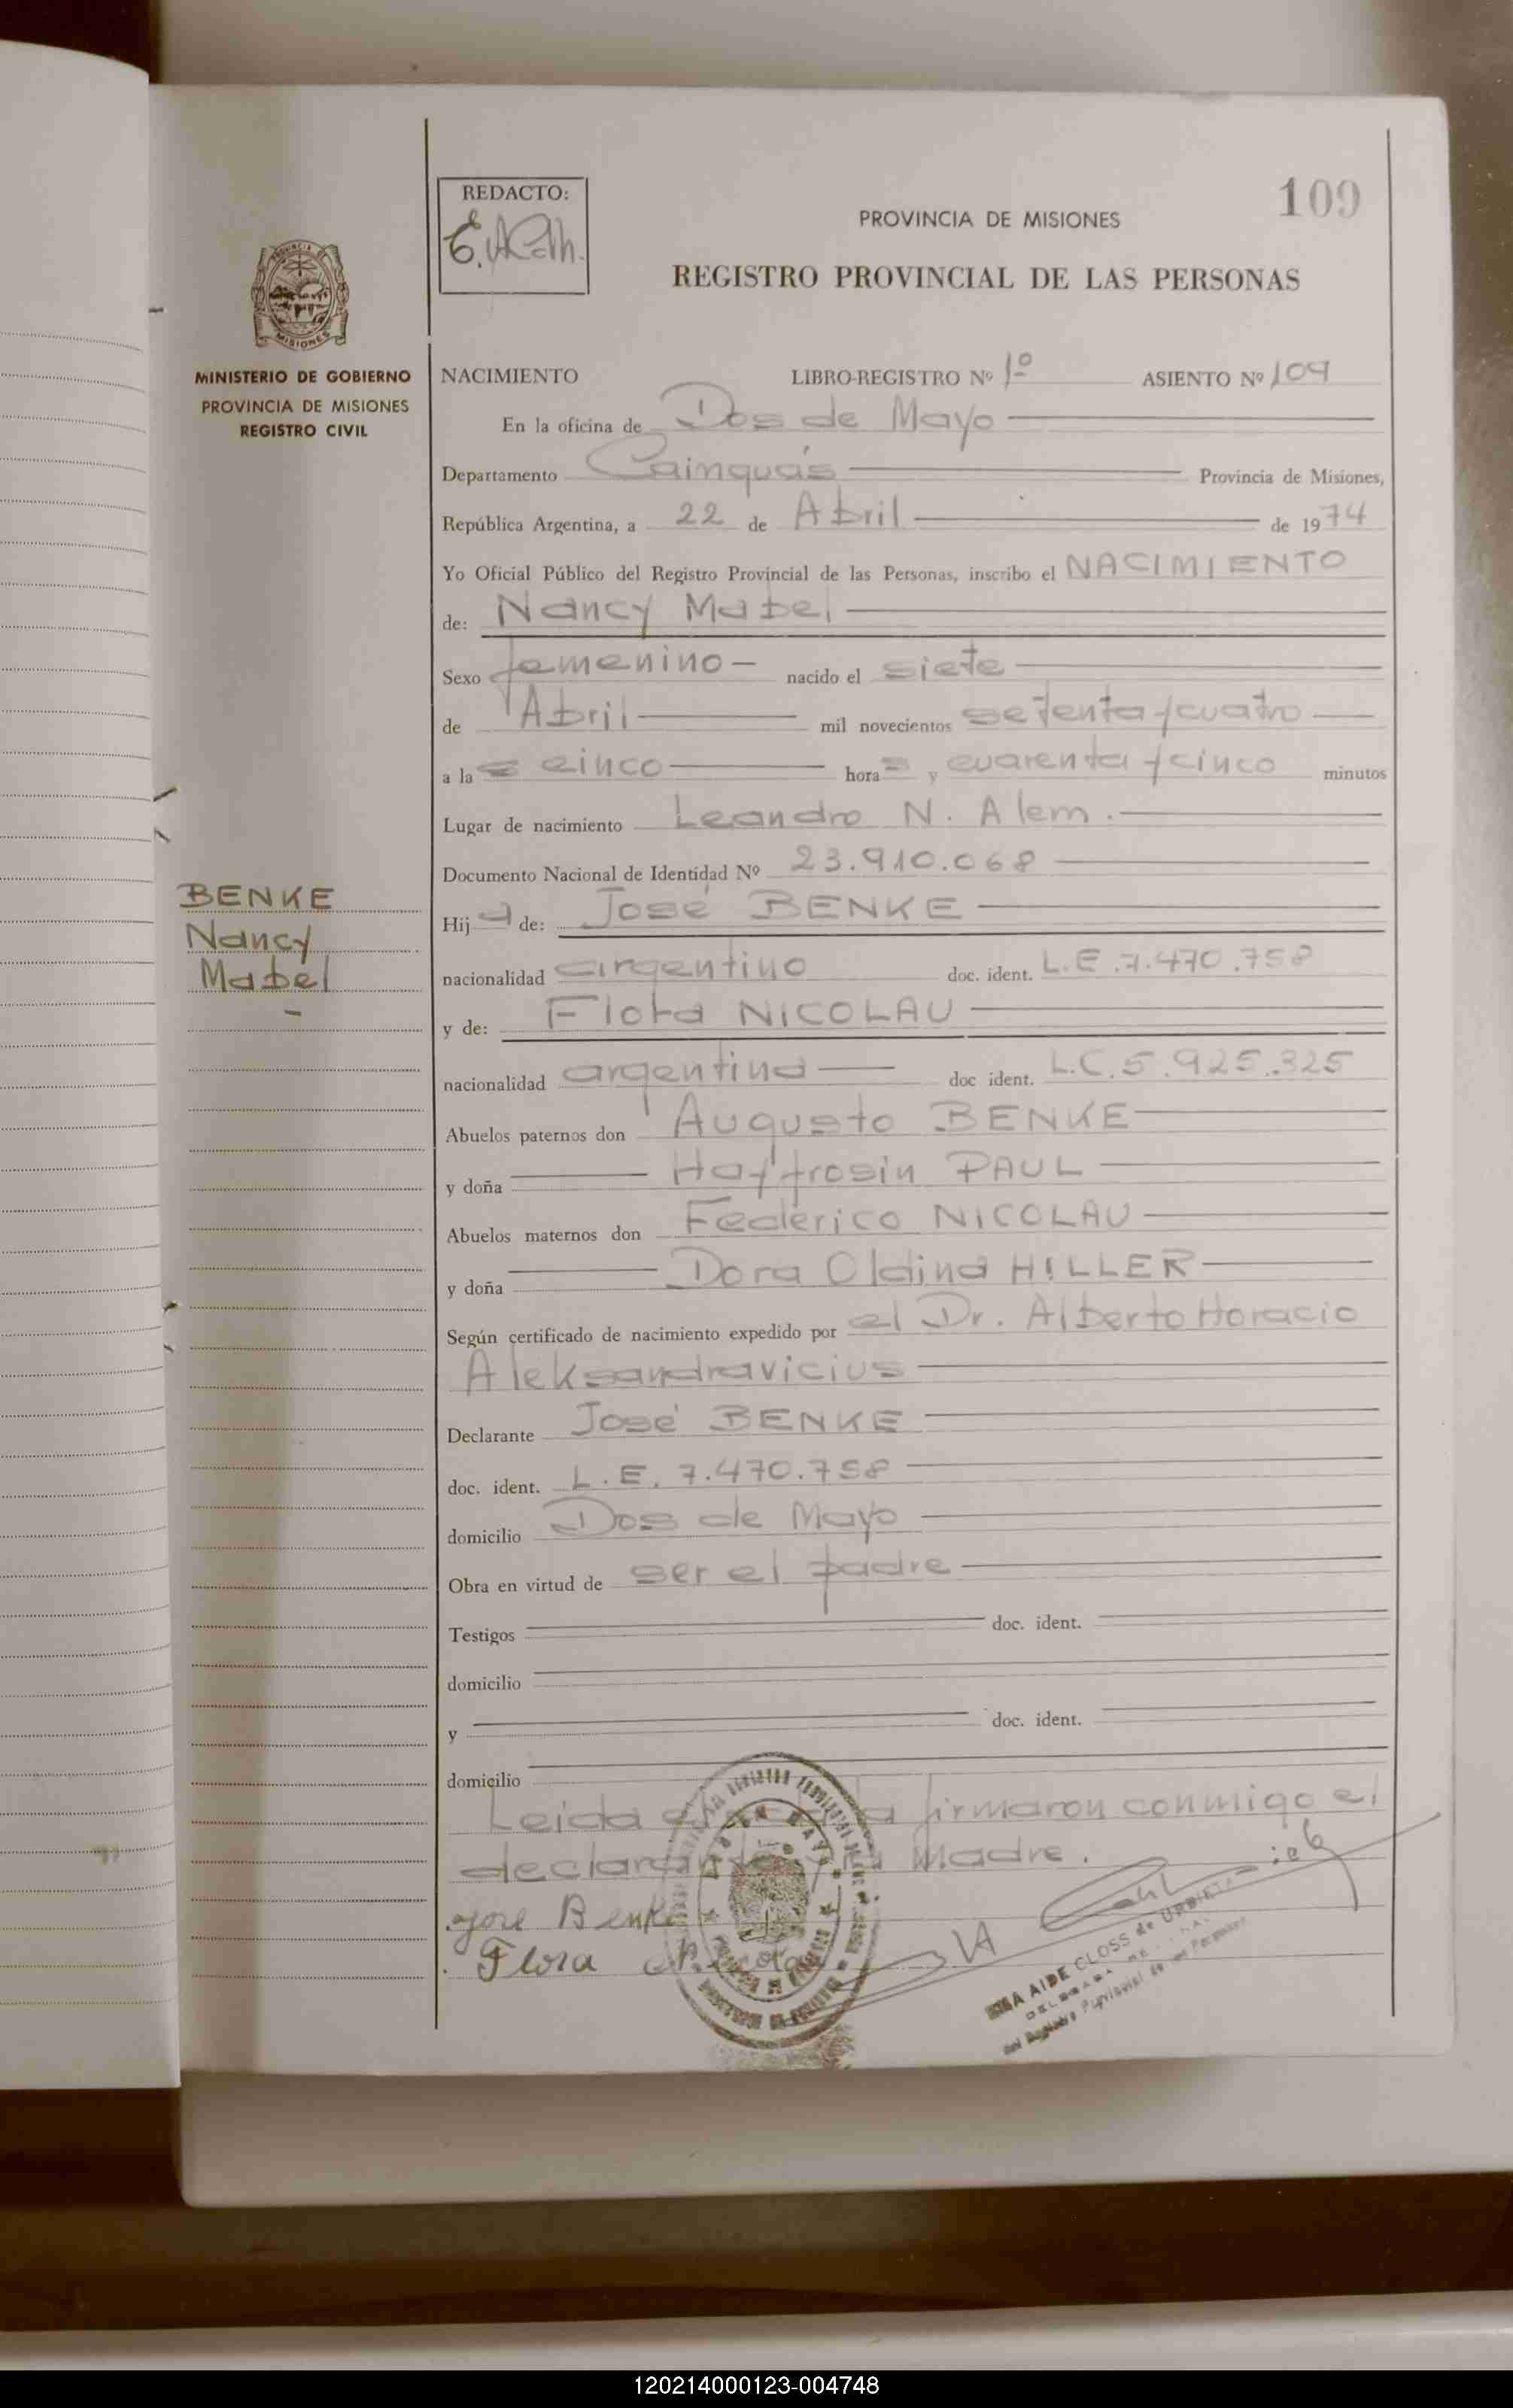 109
REDACTO:
PROVINCIA DE MISIONES
REGISTRO PROVINCIAL DE LAS PERSONAS
MINISTERIO DE GOBIERNO
PROVINCIA DE MISIONES
REGISTRO CIVIL
NACIMIENTO LIBRO-REGISTRO Nº 1º ASIENTO Nº 109
En la oficina de Dos de Mayo
Departamento Cainguás Provincia de Misiones,
República Argentina, a 22 de Abril de 1974
Yo Oficial Público del Registro Provincial de las Personas, inscribo el NACIMIENTO
de: Nancy Mabel
Sexo femenino nacido el siete
de Abril mil novecientos setenta y cuatro
a las cinco horas y cuarenta y cinco minutos
Lugar de nacimiento Leandro N. Alem.
Documento Nacional de Identidad Nº 23.910.068
BENKE
Nancy
Mabel
Hija de: José BENKE
nacionalidad argentino doc. ident. L.E. 7.470.758
y de: Flora NICOLAU
nacionalidad argentina doc ident. L.C. 5.925.325
Abuelos paternos don Augusto BENKE
y doña PAUL
Abuelos maternos don Federico NICOLAU
y doña Dora Oldina HILLER
Según certificado de nacimiento expedido por el Dr. Alberto Horacio
Aleksandravicius
Declarante José BENKE
doc. ident. L.E. 7.470.758
domicilio Dos de Mayo
Obra en virtud de ser el padre
Testigos doc. ident.
domicilio
y doc. ident.
domicilio
Leida firmaron conmigo el
declarante y la madre.
José Benke
Flora
AIDE CLOSS de URBIETA
120214000123-004748